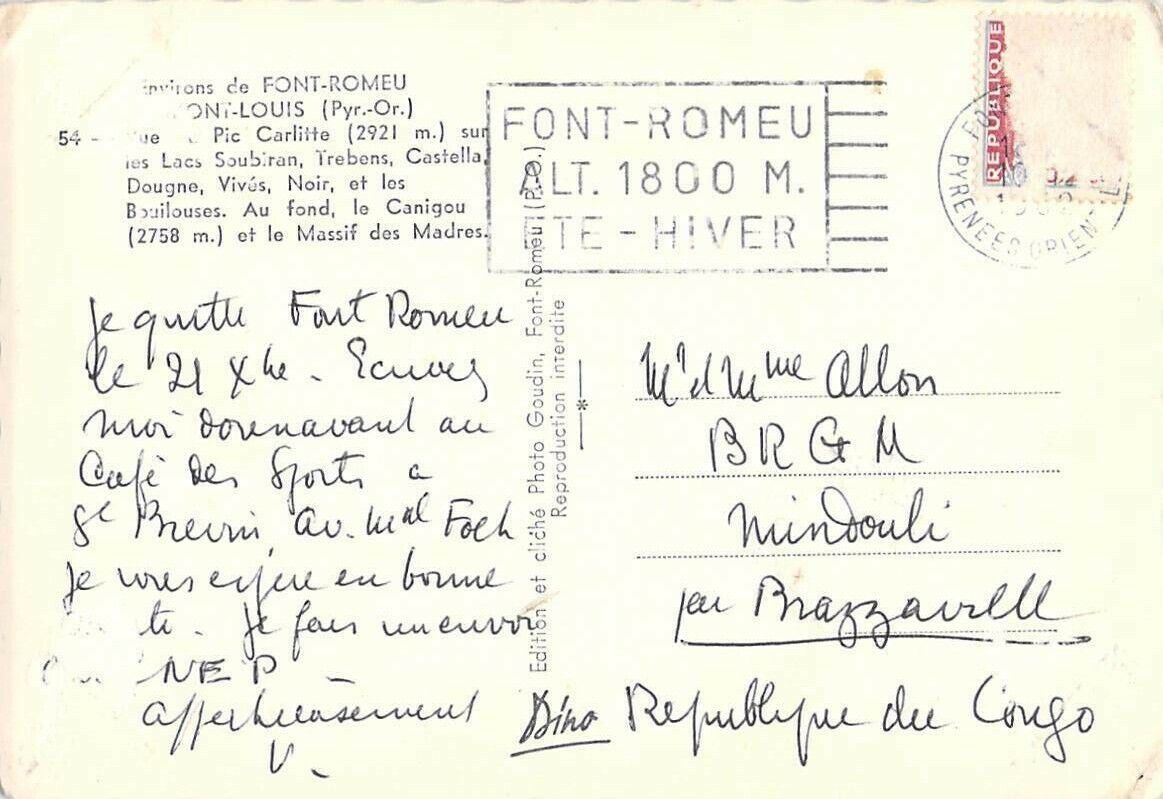 Environs de FONT-ROMEU
MONT-LOUIS (Pyr.-Or.)
54 - Vue Pic Carlitte (2921 m.) sur
les Lacs Soubiran, Trebens, Castella,
Dougne, Vivés, Noir, et les
Bouilouses. Au fond, le Canigou
(2758 m.) et le Massif des Madres.
FONT-ROMEU
ALT. 1800 M.
ETE - HIVER
REPUBLIQUE
PYRENEES ORIENTALES
Edition et cliché Photo Goudin, Font-Romeu (P.-O.)
Reproduction interdite
Je quitte Font Romeu
le 21 Xbre. Ecrivez
moi dorenavant au
Café des Sports a
St Brevin, av. Mal Foch
Je vous espere en bonne
te. Je fais un envoi
NEP
affectueusement
V.
Mr et Mme Allon
BRGM
Mindouli
par Brazzaville
Republique du Congo